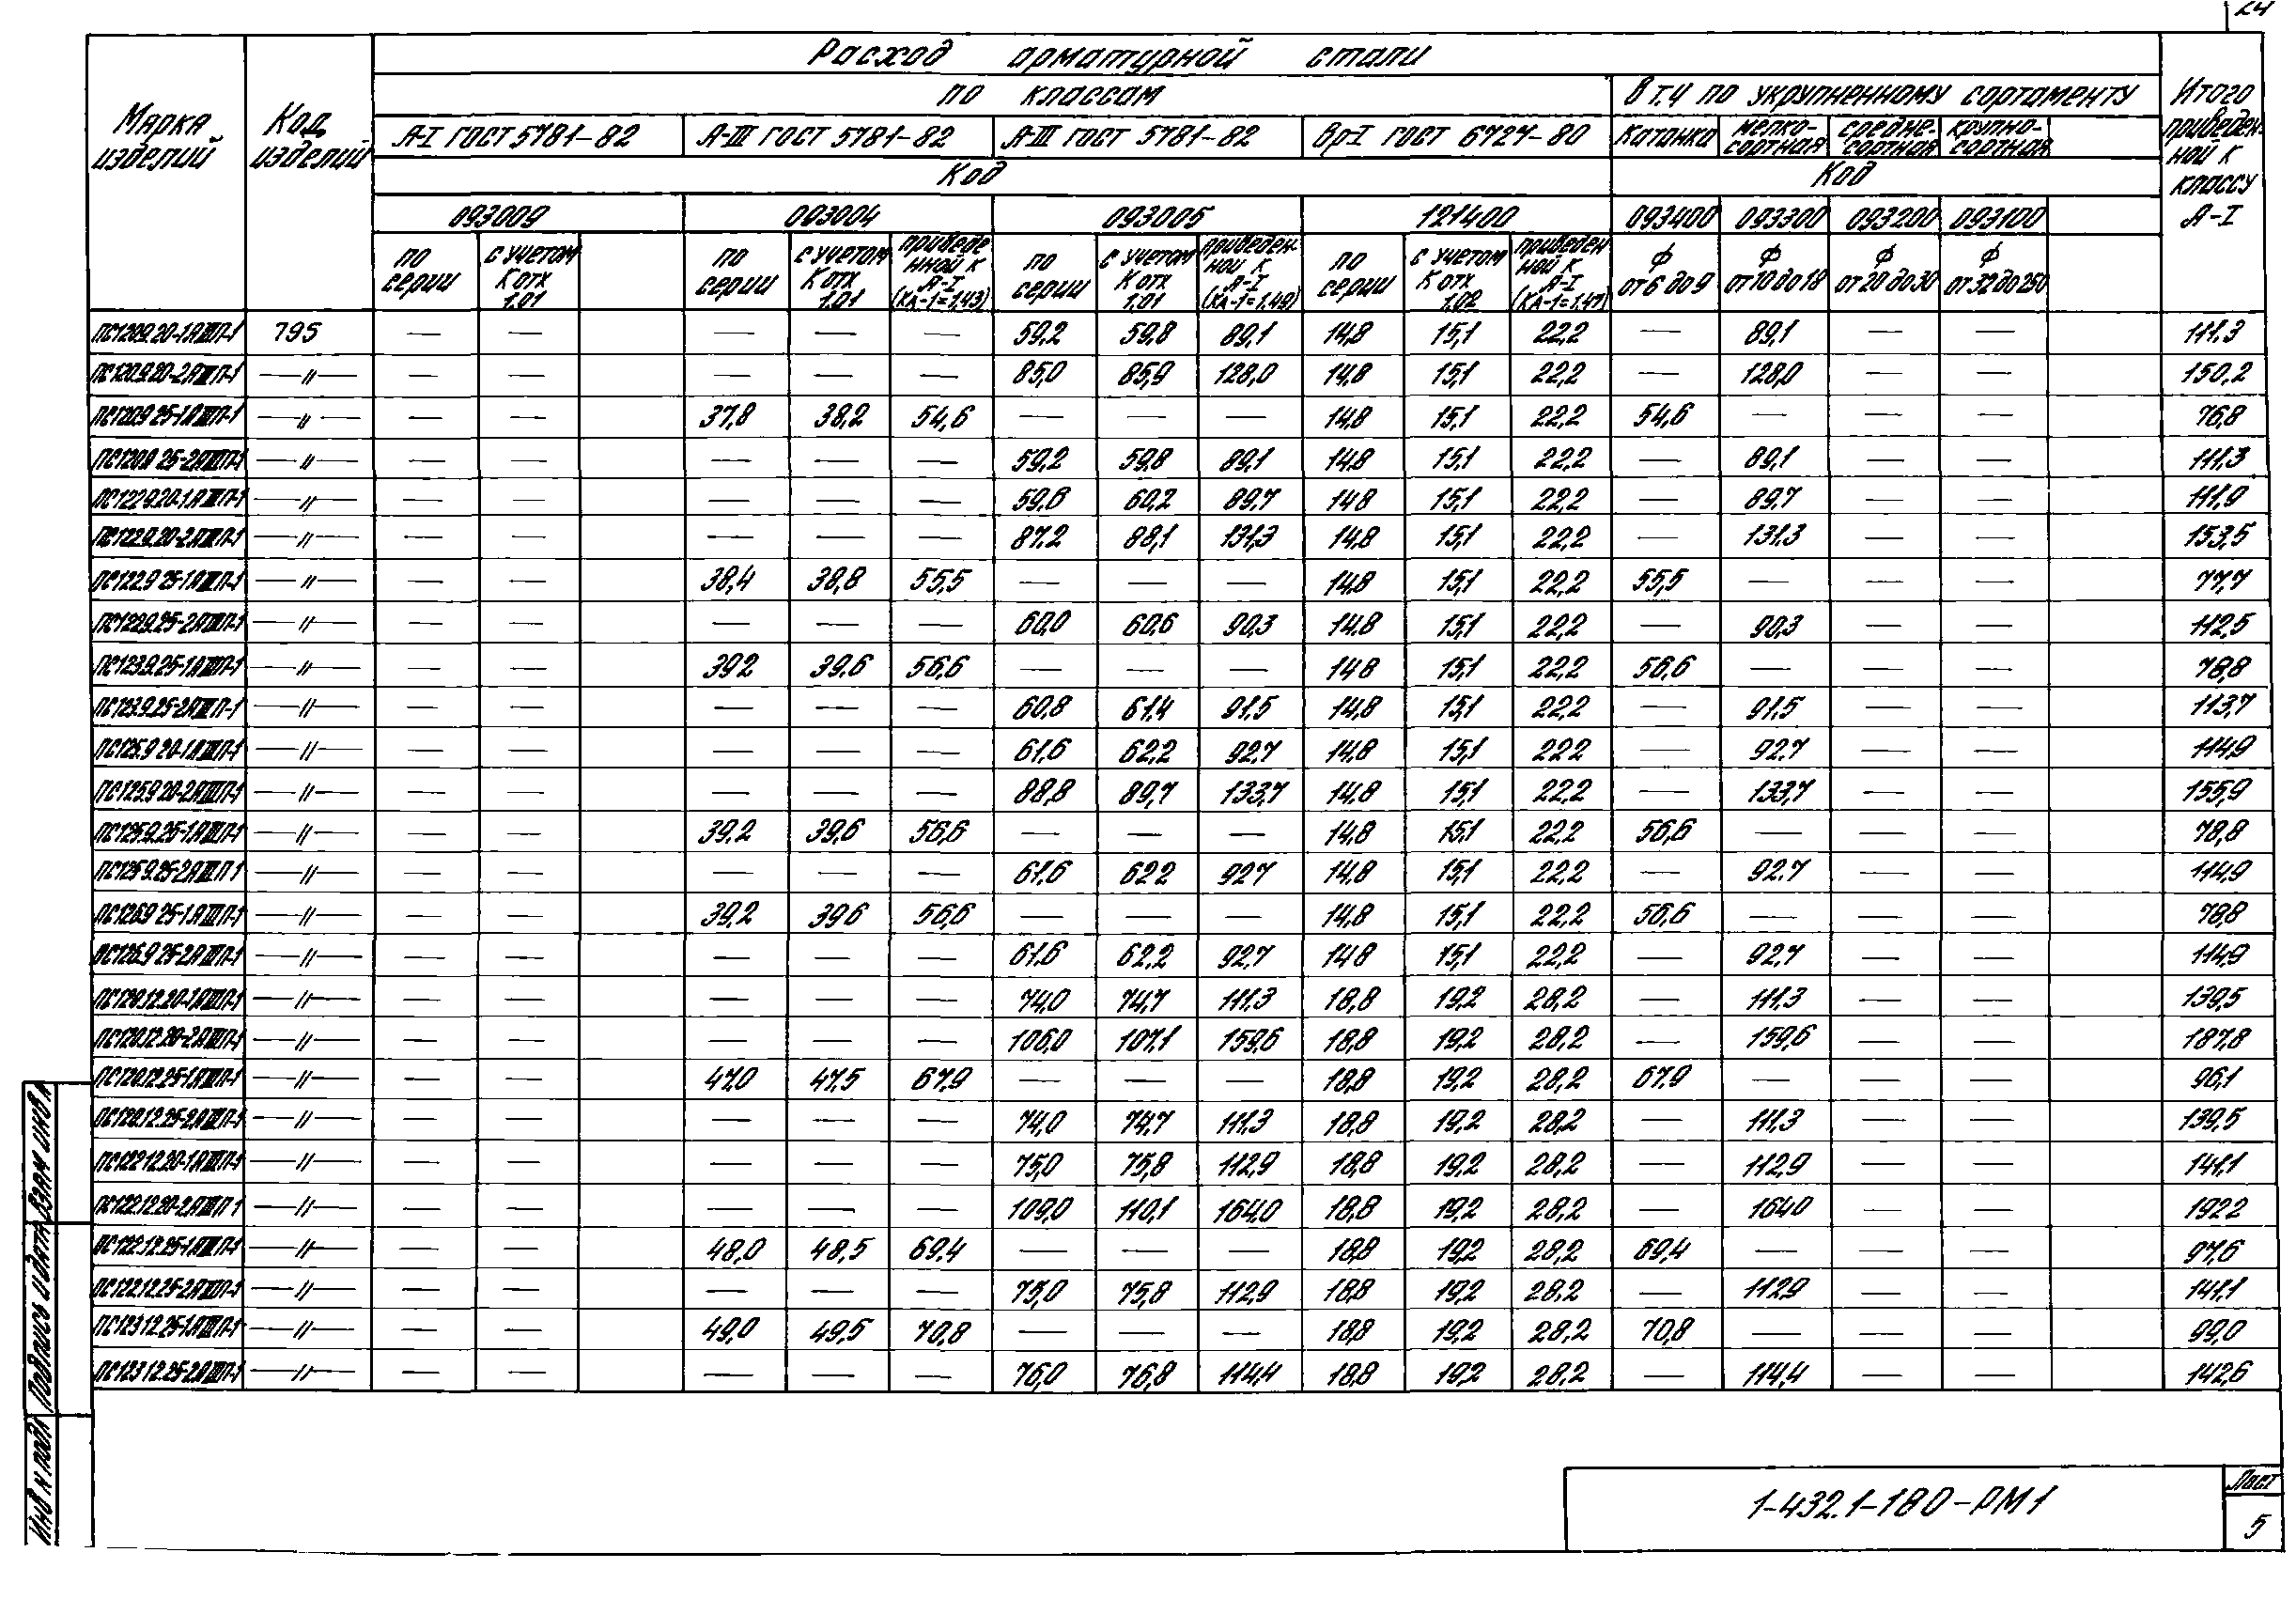 24
Расход арматурной стали
по классам
В т.ч по укрупненному сортаменту
Марка изделий
Код изделий
Итого приведенной к классу А-I
А-I ГОСТ 5781-82
А-III ГОСТ 5781-82
А-III ГОСТ 5781-82
Вр-I ГОСТ 6727-80
Катанка
мелкосортная
среднесортная
крупносортная
Код
Код
093009
093004
093005
121400
093400
093300
093200
093100
по серии
с учетом К отх 1.01
по серии
с учетом К отх 1.01
приведенной к А-I (КА-1=1,43)
по серии
с учетом К отх 1.01
приведенной к А-I (КА-1=1,49)
по серии
с учетом К отх 1.02
приведенной к А-I (КА-1=1,47)
ф от 6 до 9
ф от 10 до 18
ф от 20 до 30
ф от 32 до 250
ПС120.9.20-1АIIIП-1 795 — — — — — 59,2 59,8 89,1 14,8 15,1 22,2 — 89,1 — — 111,3
ПС120.9.20-2АIIIП-1 —〃— — — — — — 85,0 85,9 128,0 14,8 15,1 22,2 — 128,0 — — 150,2
ПС120.9.25-1АIIIП-1 —〃— — — 37,8 38,2 54,6 — — — 14,8 15,1 22,2 54,6 — — — 76,8
ПС120.9.25-2АIIIП-1 —〃— — — — — — 59,2 59,8 89,1 14,8 15,1 22,2 — 89,1 — — 111,3
ПС122.9.20-1АIIIП-1 —〃— — — — — — 59,6 60,2 89,7 14,8 15,1 22,2 — 89,7 — — 111,9
ПС122.9.20-2АIIIП-1 —〃— — — — — — 87,2 88,1 131,3 14,8 15,1 22,2 — 131,3 — — 153,5
ПС122.9.25-1АIIIП-1 —〃— — — 38,4 38,8 55,5 — — — 14,8 15,1 22,2 55,5 — — — 77,7
ПС122.9.25-2АIIIП-1 —〃— — — — — — 60,0 60,6 90,3 14,8 15,1 22,2 — 90,3 — — 112,5
ПС123.9.25-1АIIIП-1 —〃— — — 39,2 39,6 56,6 — — — 14,8 15,1 22,2 56,6 — — — 78,8
ПС123.9.25-2АIIIП-1 —〃— — — — — — 60,8 61,4 91,5 14,8 15,1 22,2 — 91,5 — — 113,7
ПС125.9.20-1АIIIП-1 —〃— — — — — — 61,6 62,2 92,7 14,8 15,1 22,2 — 92,7 — — 114,9
ПС125.9.20-2АIIIП-1 —〃— — — — — — 88,8 89,7 133,7 14,8 15,1 22,2 — 133,7 — — 155,9
ПС125.9.25-1АIIIП-1 —〃— — — 39,2 39,6 56,6 — — — 14,8 15,1 22,2 56,6 — — — 78,8
ПС125.9.25-2АIIIП-1 —〃— — — — — — 61,6 62,2 92,7 14,8 15,1 22,2 — 92,7 — — 114,9
ПС126.9.25-1АIIIП-1 —〃— — — 39,2 39,6 56,6 — — — 14,8 15,1 22,2 56,6 — — — 78,8
ПС126.9.25-2АIIIП-1 —〃— — — — — — 61,6 62,2 92,7 14,8 15,1 22,2 — 92,7 — — 114,9
ПС120.12.20-1АIIIП-1 —〃— — — — — — 74,0 74,7 111,3 18,8 19,2 28,2 — 111,3 — — 139,5
ПС120.12.20-2АIIIП-1 —〃— — — — — — 106,0 107,1 159,6 18,8 19,2 28,2 — 159,6 — — 187,8
ПС120.12.25-1АIIIП-1 —〃— — — 47,0 47,5 67,9 — — — 18,8 19,2 28,2 67,9 — — — 96,1
ПС120.12.25-2АIIIП-1 —〃— — — — — — 74,0 74,7 111,3 18,8 19,2 28,2 — 111,3 — — 139,5
ПС122.12.20-1АIIIП-1 —〃— — — — — — 75,0 75,8 112,9 18,8 19,2 28,2 — 112,9 — — 141,1
ПС122.12.20-2АIIIП-1 —〃— — — — — — 109,0 110,1 164,0 18,8 19,2 28,2 — 164,0 — — 192,2
ПС122.12.25-1АIIIП-1 —〃— — — 48,0 48,5 69,4 — — — 18,8 19,2 28,2 69,4 — — — 97,6
ПС122.12.25-2АIIIП-1 —〃— — — — — — 75,0 75,8 112,9 18,8 19,2 28,2 — 112,9 — — 141,1
ПС123.12.25-1АIIIП-1 —〃— — — 49,0 49,5 70,8 — — — 18,8 19,2 28,2 70,8 — — — 99,0
ПС123.12.25-2АIIIП-1 —〃— — — — — — 76,0 76,8 114,4 18,8 19,2 28,2 — 114,4 — — 142,6
Инв N подл Подпись и дата Взам инв N
1-432.1-180-РМ1
Лист
5